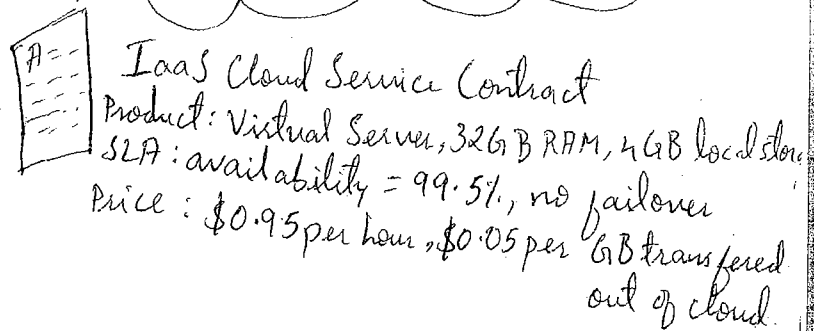 A
IaaS Cloud Service Contract
Product: Virtual Server, 32GB RAM, 4GB local stor
SLA: availability = 99.5%, no failover
Price: $0.95 per hour, $0.05 per GB transfered
out of cloud.